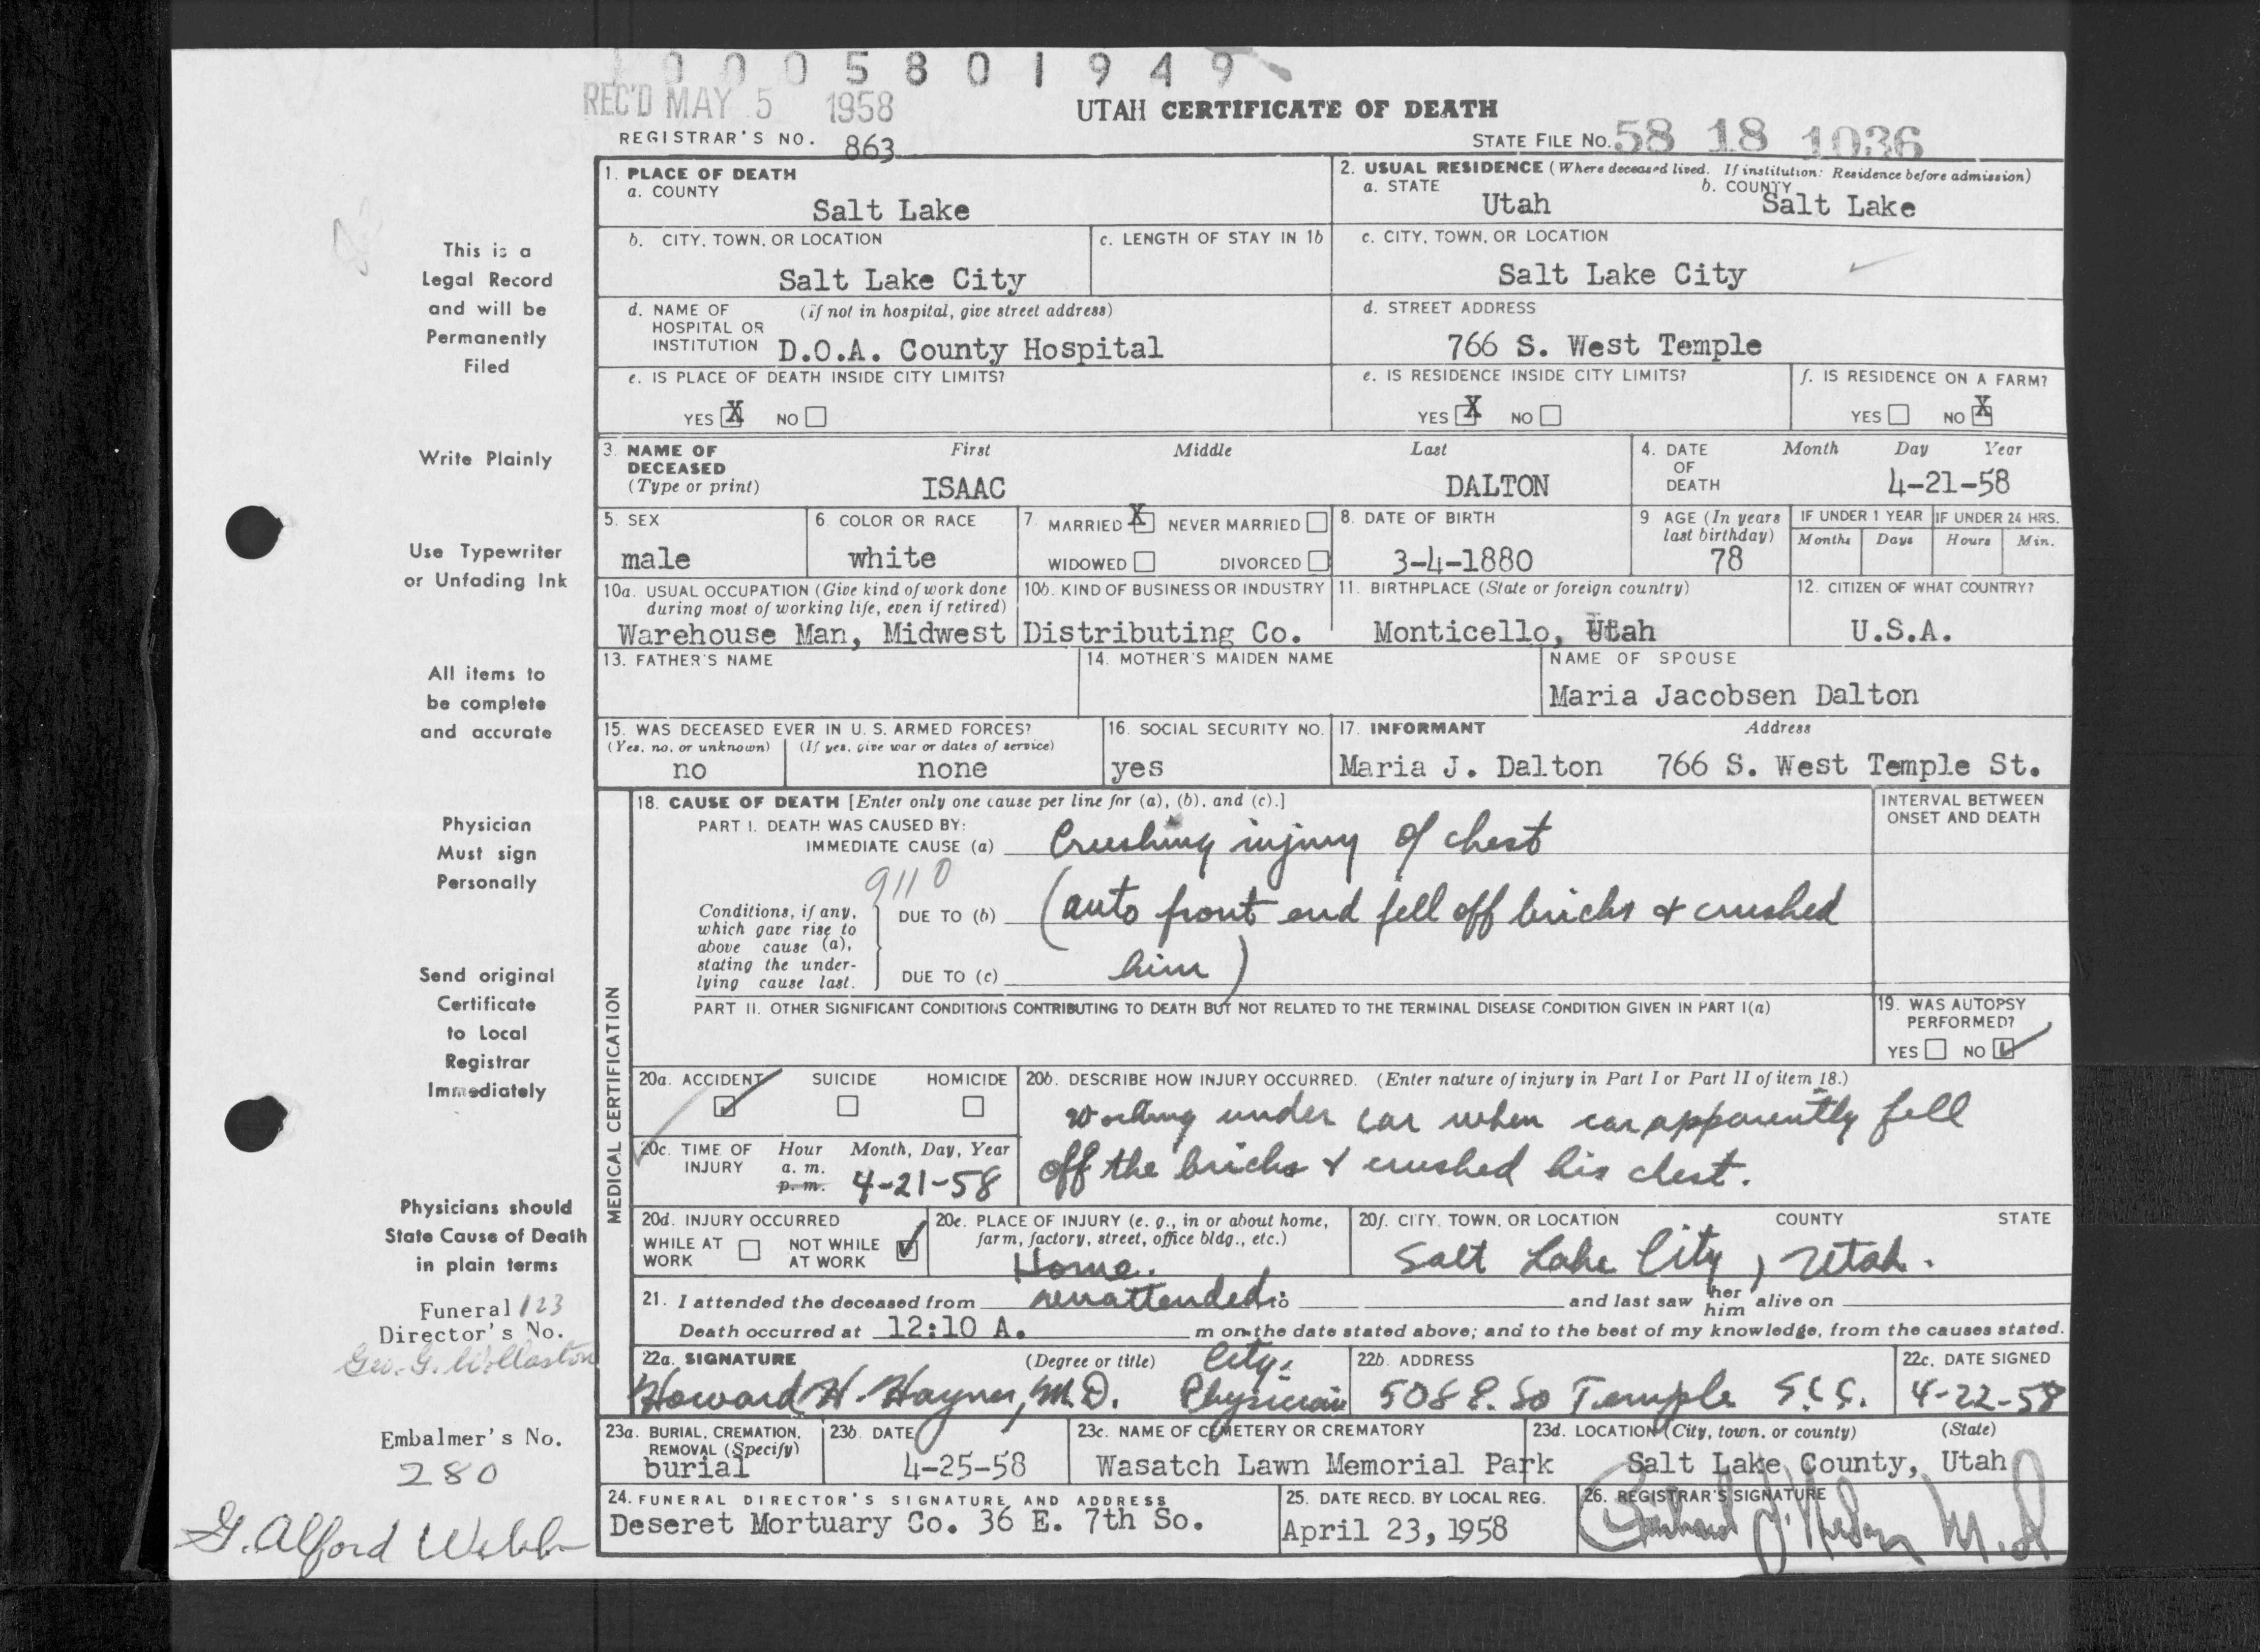 10005801949
REC'D MAY 5 1958
UTAH CERTIFICATE OF DEATH
REGISTRAR'S NO. 863
STATE FILE NO. 58 18 1036
1. PLACE OF DEATH
a. COUNTY
Salt Lake
2. USUAL RESIDENCE (Where deceased lived. If institution: Residence before admission)
a. STATE
Utah
b. COUNTY
Salt Lake
b. CITY, TOWN, OR LOCATION
Salt Lake City
c. LENGTH OF STAY IN 1b
c. CITY, TOWN, OR LOCATION
Salt Lake City
d. NAME OF HOSPITAL OR INSTITUTION
(if not in hospital, give street address)
D.O.A. County Hospital
d. STREET ADDRESS
766 S. West Temple
e. IS PLACE OF DEATH INSIDE CITY LIMITS?
YES X NO
e. IS RESIDENCE INSIDE CITY LIMITS?
YES X NO
f. IS RESIDENCE ON A FARM?
YES NO X
3. NAME OF DECEASED (Type or print)
First Middle Last
ISAAC DALTON
4. DATE OF DEATH
Month Day Year
4-21-58
5. SEX
male
6. COLOR OR RACE
white
7. MARRIED X NEVER MARRIED
WIDOWED DIVORCED
8. DATE OF BIRTH
3-4-1880
9 AGE (In years last birthday)
78
IF UNDER 1 YEAR
Months Days
IF UNDER 24 HRS.
Hours Min.
10a. USUAL OCCUPATION (Give kind of work done during most of working life, even if retired)
10b. KIND OF BUSINESS OR INDUSTRY
Warehouse Man, Midwest Distributing Co.
11. BIRTHPLACE (State or foreign country)
Monticello, Utah
12. CITIZEN OF WHAT COUNTRY?
U.S.A.
13. FATHER'S NAME
14. MOTHER'S MAIDEN NAME
NAME OF SPOUSE
Maria Jacobsen Dalton
15. WAS DECEASED EVER IN U. S. ARMED FORCES?
(Yes, no, or unknown) (If yes, give war or dates of service)
no none
16. SOCIAL SECURITY NO.
yes
17. INFORMANT Address
Maria J. Dalton 766 S. West Temple St.
MEDICAL CERTIFICATION
18. CAUSE OF DEATH [Enter only one cause per line for (a), (b), and (c).]
INTERVAL BETWEEN ONSET AND DEATH
PART I. DEATH WAS CAUSED BY:
IMMEDIATE CAUSE (a) Crushing injury of chest
9110
Conditions, if any, which gave rise to above cause (a), stating the underlying cause last.
DUE TO (b) (auto front end fell off bricks & crushed
DUE TO (c) him)
PART II. OTHER SIGNIFICANT CONDITIONS CONTRIBUTING TO DEATH BUT NOT RELATED TO THE TERMINAL DISEASE CONDITION GIVEN IN PART I(a)
19. WAS AUTOPSY PERFORMED?
YES NO
20a. ACCIDENT SUICIDE HOMICIDE
20b. DESCRIBE HOW INJURY OCCURRED. (Enter nature of injury in Part I or Part II of item 18.)
Working under car when car apparently fell
off the bricks & crushed his chest.
20c. TIME OF INJURY
Hour Month, Day, Year
a. m.
p. m. 4-21-58
20d. INJURY OCCURRED
WHILE AT WORK NOT WHILE AT WORK
20e. PLACE OF INJURY (e. g., in or about home, farm, factory, street, office bldg., etc.)
Home.
20f. CITY, TOWN, OR LOCATION COUNTY STATE
Salt Lake City, Utah.
21. I attended the deceased from unattended to and last saw her him alive on
Death occurred at 12:10 A. m on the date stated above; and to the best of my knowledge, from the causes stated.
22a. SIGNATURE (Degree or title)
Howard H. Hayner, M.D. City Physician
22b. ADDRESS
508 E. So Temple S.L.C.
22c. DATE SIGNED
4-22-58
23a. BURIAL, CREMATION, REMOVAL (Specify)
burial
23b. DATE
4-25-58
23c. NAME OF CEMETERY OR CREMATORY
Wasatch Lawn Memorial Park
23d. LOCATION (City, town, or county) (State)
Salt Lake County, Utah
24. FUNERAL DIRECTOR'S SIGNATURE AND ADDRESS
Deseret Mortuary Co. 36 E. 7th So.
25. DATE RECD. BY LOCAL REG.
April 23, 1958
26. REGISTRAR'S SIGNATURE
M.D.
This is a
Legal Record
and will be
Permanently
Filed
Write Plainly
Use Typewriter
or Unfading Ink
All items to
be complete
and accurate
Physician
Must sign
Personally
Send original
Certificate
to Local
Registrar
Immediately
Physicians should
State Cause of Death
in plain terms
Funeral 123
Director's No.
Geo. G. Wollaston
Embalmer's No.
280
G. Alford Webb